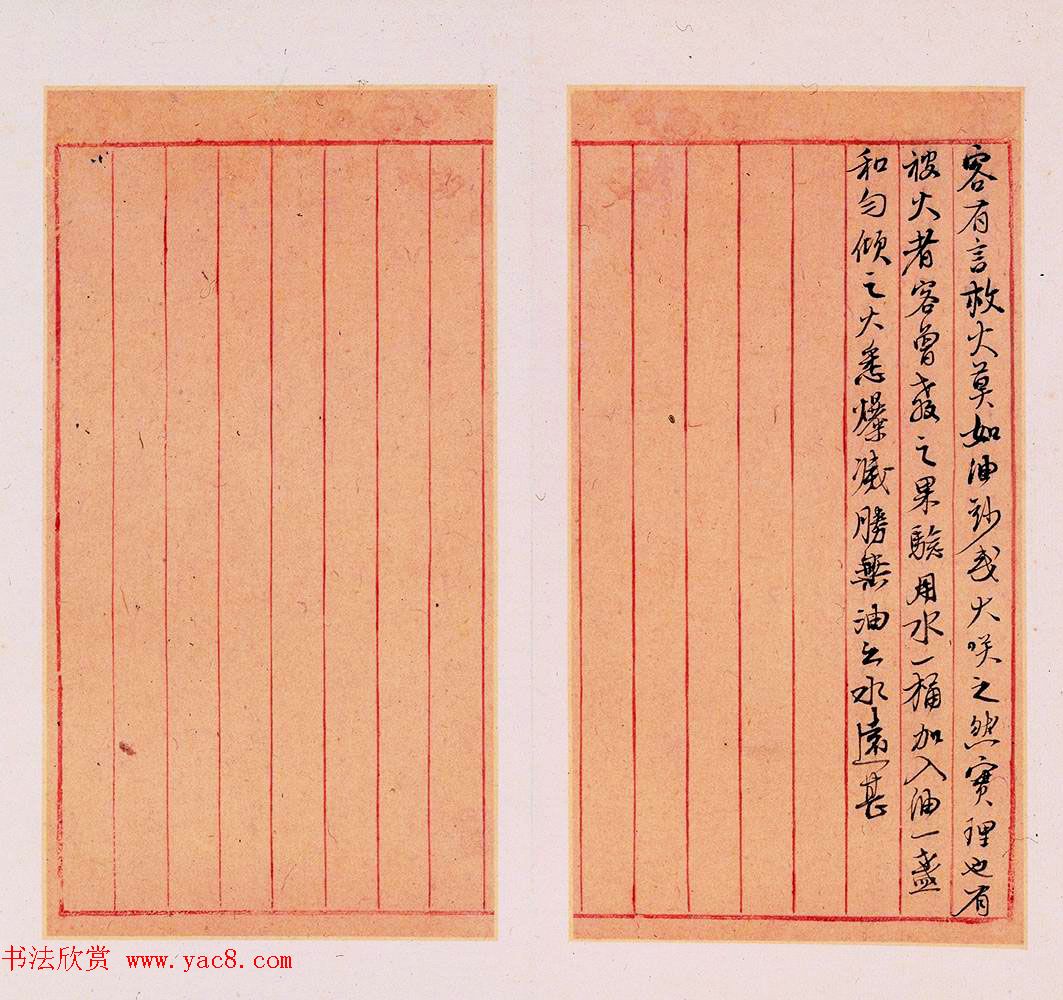 客有言救火莫如油鈔或大咲之然實理也有
被火者客曾教之果驗用水一桶加入油一盞
和勻傾之火悉爆滅勝無油之水遠甚
书法欣赏 www.yac8.com